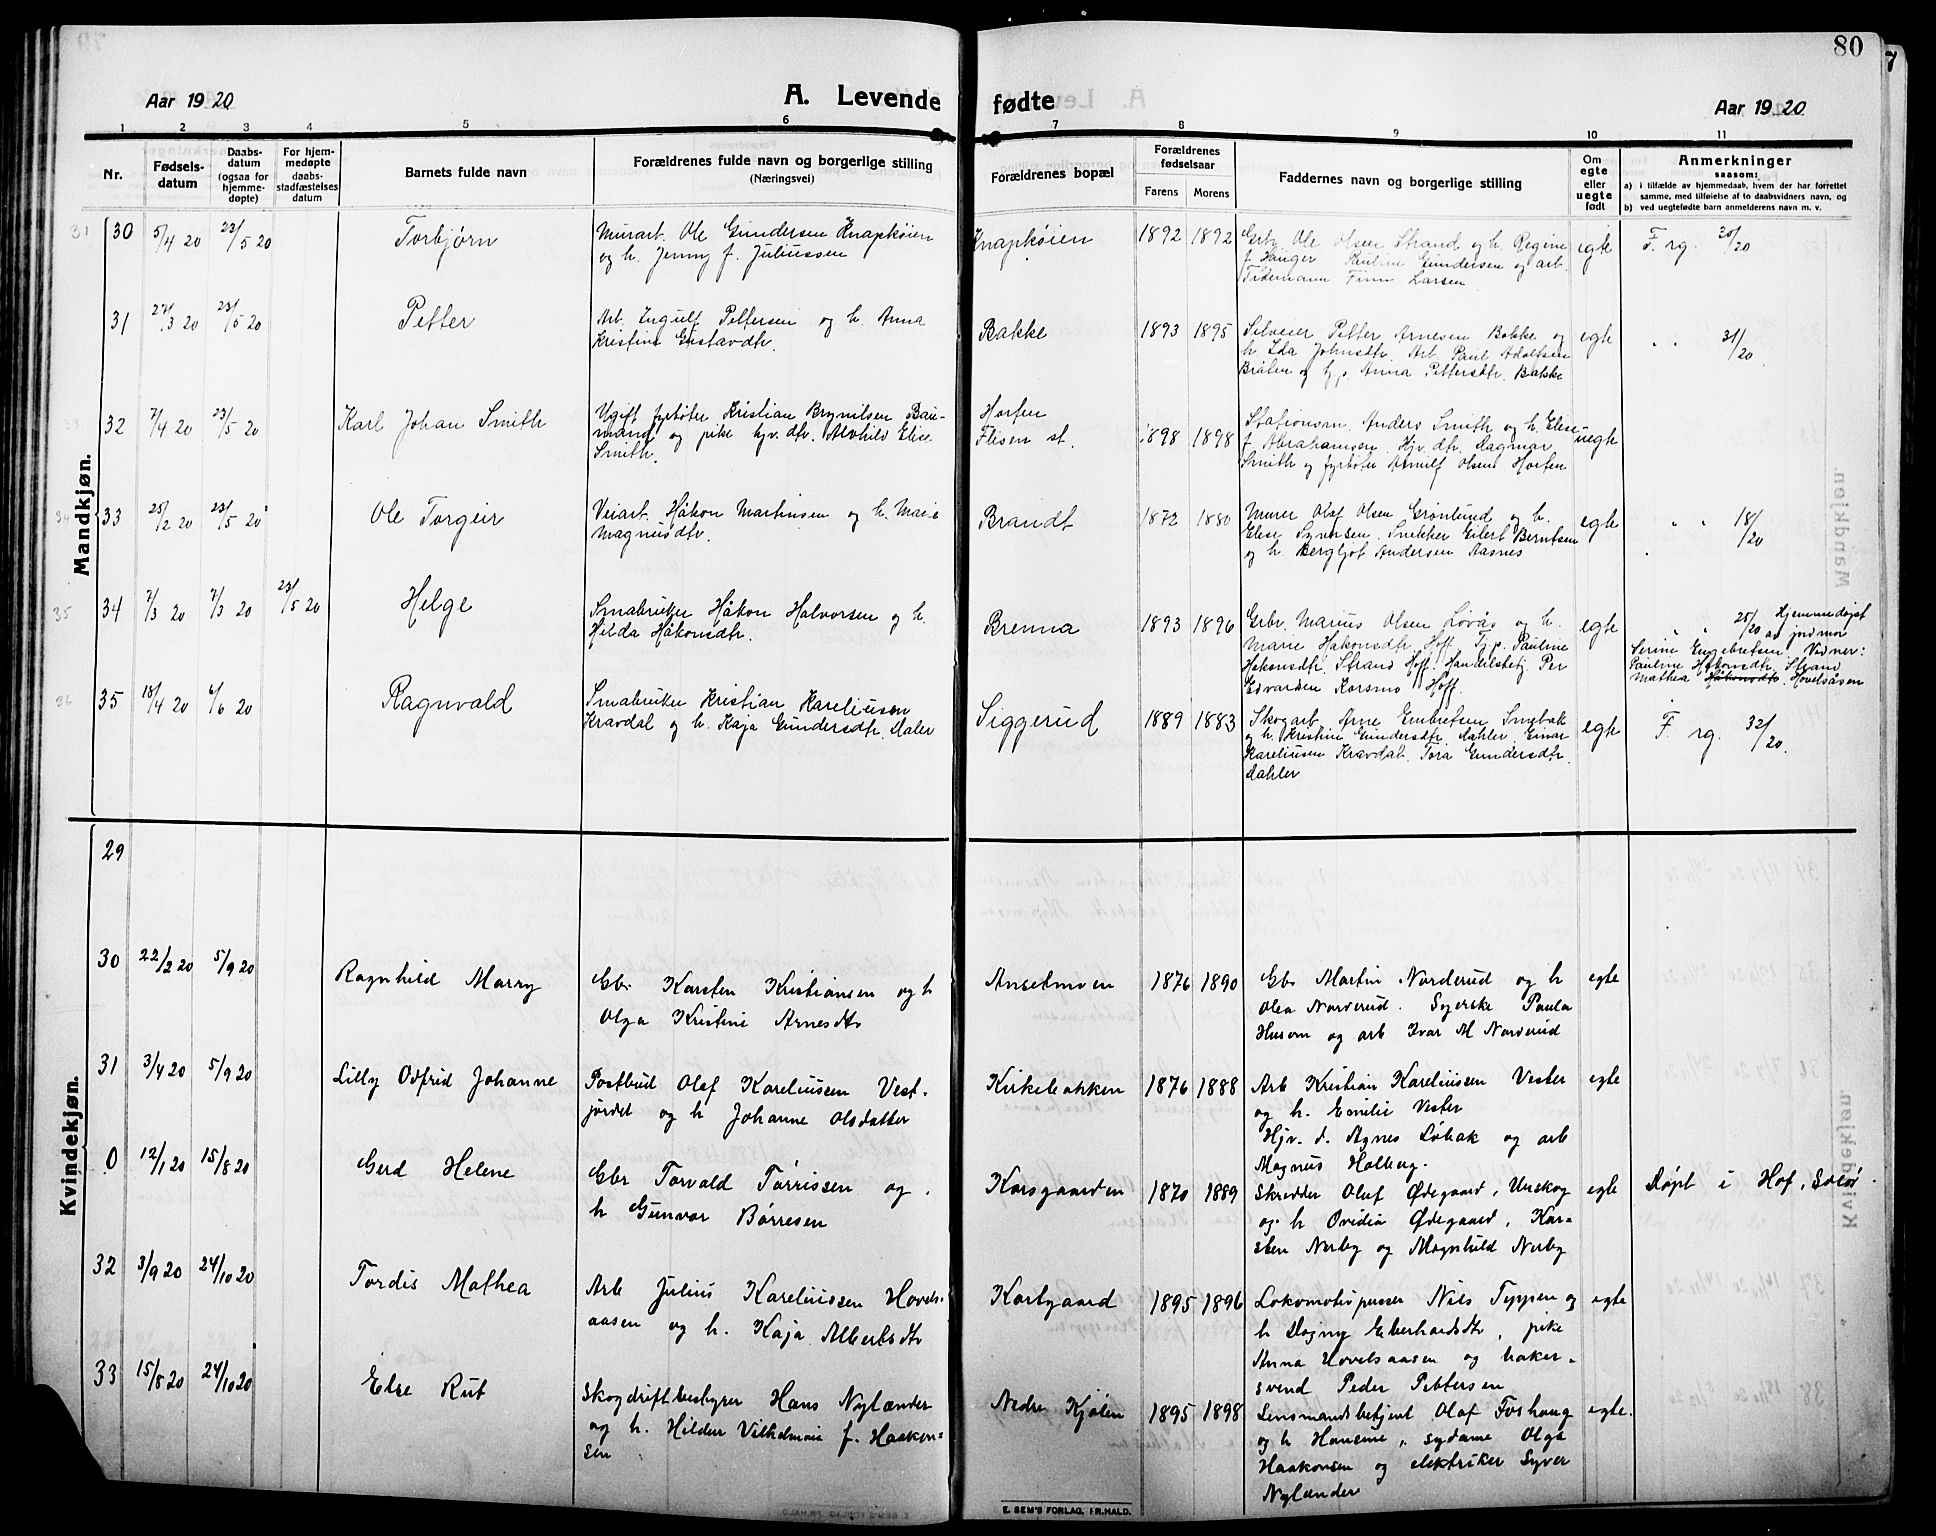 80
7
Aar 1920
A. Levende fødte
Aar 1920
1 2 3 4 5 6 7 8 9 10 11
Nr.
Fødsels-
datum
Daabs-
datum
(ogsaa for
hjemme-
døpte)
For hjem-
medøpte
daabs-
stadfæstelses
datum
Barnets fulde navn
Forældrenes fulde navn og borgerlige stilling
(Næringsvei)
Forældrenes bopæl
Forældrenes
fødselsaar
Farens Morens
Faddernes navn og borgerlige stilling
Om
egte
eller
uegte
født
Anmerkninger
saasom:
a) i tilfælde av hjemmedaab, hvem der har forrettet
samme, med tilføielse af to daabsvidners navn, og
b) ved uegtefødte barn anmelderens navn m. v.
Mandkjøn.
31 30 5/4 20 23/5 20 Torbjørn
Murarb. Ole Gundersen Knapkøien
og h. Jenny f. Juliussen
Knapkøien 1892 1892
Grbr. Ole Olsen Strand og h. Regine
f. Hauger Pauline Gundersen og arb.
Tidemann Finn Larsen
egte F. rg. 30/20
31 27/3 20 23/5 20 Petter
Arb. Ingulf Pettersen og h. Anna
Kristine Gustavdtr.
Bakke 1893 1895
Selveier Petter Arnesen Bakke og
h. Ida Johnsdtr. Arb. Paul Adolfsen
Bråten og tj.p. Anna Pettersdtr. Bakke
egte " " 31/20
32 7/4 20 23/5 20 Karl Johan Smith
Ugift fyrbøter Kristian Brynilsen Bau-
mand og pike hjv. dtr. Alvhild Elise
Smith.
Horfen
Flisen st. 1898 1898
Stationsm. Anders Smith og h. Elise
f. Abrahamsen. Hjv. dtr. Dagmar
Smith og fyrbøter Arnulf Olsen Horfen
uegte
34 33 25/2 20 23/5 20 Ole Torgeir
Veiarb. Håkon Martinsen og h. Marie
Magnusdtr.
Brandt 1872 1880
Murer Olaf Olsen Grønlund og h.
Elise Syversen. Snekker Eilert Berntsen
og h. Bergljot Andersen Aasnes
egte " " 18/20
35 34 7/3 20 7/3 20 23/5 20 Helge
Småbruker Håkon Halvorsen og h.
Hilda Håkonsdtr.
Brenna 1893 1896
Grbr. Marius Olsen Løvås og h.
Marie Håkonsdtr. Hoff. Tj.p. Pauline
Håkonsdtr. Strand Hoff. Handelsbetj. Per
Edvardsen Korsmo Hoff.
egte " " 25/20 Hjemmedøpt
av jordmor
Serine Engebretsen Vidner:
Pauline Håkonsdtr. Strand
Mathea Håkonsdtr. Hovelsåsen
36 35 18/4 20 6/6 20 Ragnvald
Småbruker Kristian Kareliussen
Kravdal og h. Kaja Gundersdtr. Daler
Siggerud 1889 1883
Skogarb. Arne Embretsen Smebak
og h. Kristine Gundersdtr. Dahler. Einar
Kareliussen Kravdal. Tora Gundersdtr.
Dahler
egte F. rg. 32/20.
Kvindekjøn.
29
30 22/2 20 5/9 20 Ragnhild Marry
Gbr Karsten Kristiansen og h
Olga Kristine Arnesdtr
Anselmoen 1876 1890
Gbr Martin Norderud og h
Olea Norderud. Syerske Paula
Husom og arb Ivar M Norderud
egte
31 3/4 20 5/9 20 Lilly Odfrid Johanne
Postbud Olaf Kareliussen Vest-
jordet og h Johanne Olsdatter
Kirkebakken 1876 1888
Arb Kristian Kareliussen Vester
og h. Emilie Vester
Hjv. d. Agnes Løbak og arb
Magnus Holberg.
egte
0 12/1 20 15/8 20 Gerd Helene
Gbr Torvald Tørrissen og
h Gunvor Børresen
Korsgaarden 1870 1889
Skredder Oluf Ødegaard, Urskog
og h Ovidia Ødegaard, Kar-
sten Nerby og Magnhild Nerby
egte Døpt i Hof, Solør.
32 3/9 20 24/10 20 Tordis Mathea
Arb Julius Kareliussen Hovels-
aasen og h. Kaja Albertsdtr
Kortgaard 1895 1896
Lokomotivpusser Nils Teppen og
h Dagny Eberhardsdtr, pike
Anna Hovelsaasen og baker-
svend Peder Pettersen
egte
33 15/8 20 24/10 20 Else Rut
Skogdriftbestyrer Hans Nylænder
og h. Hildur Vilhelmine f. Haakon-
sen
Nedre Kjølen 1895 1898
Lensmandsbetjent Olaf Foshaug
og h Hansine, sydame Olga
Haakonsen og elektriker Syver
Nylænder
egte.
E. SEM'S FORLAG, FR.HALD.